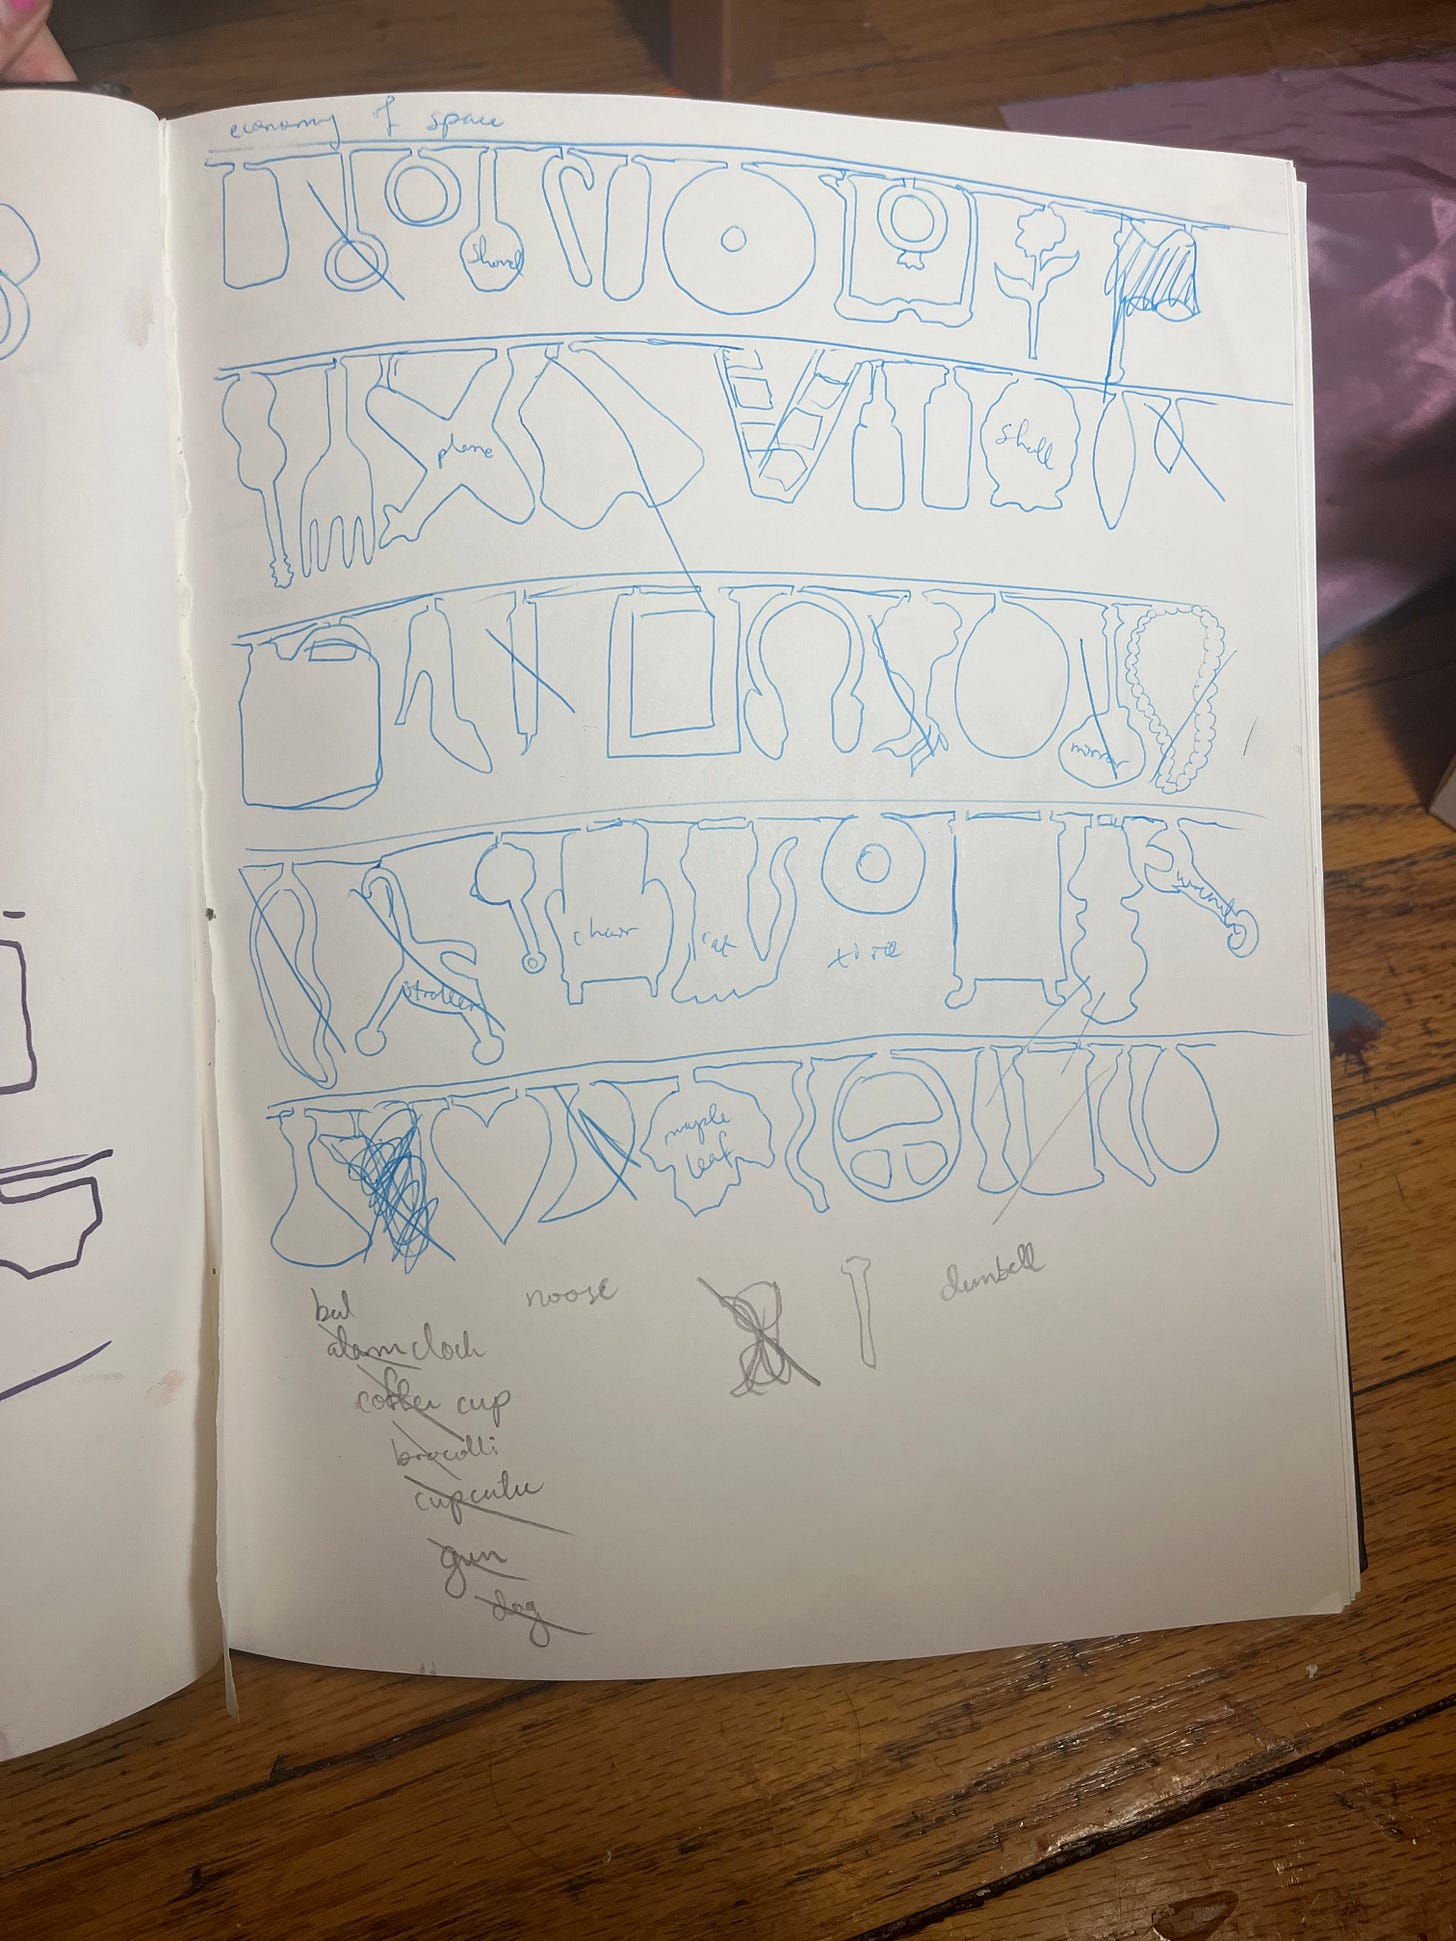 economy of space
shovel
plane
shell
mirror
chair
cat
tire
stroller
maple
leaf
noose
dumbell
alarm clock
coffee cup
brocolli
gun
dog